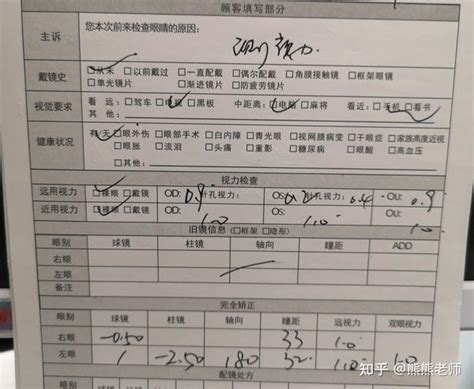 顾客填写部分
主诉 您本次前来检查眼睛的原因:
测视力
戴镜史 □从未 □以前戴过 □一直配戴 □偶尔配戴 □角膜接触镜 □框架眼镜
□单光镜片 □渐进镜片 □防疲劳镜片
视觉要求 看远:□驾车 □电视 □黑板 中距离:□电脑 □麻将 看近:□手机 □看书
其他:
健康状况 有/无 □眼外伤 □眼部手术 □白内障 □青光眼 □视网膜病变 □干眼症 □家族高度近视
□眼胀 □流泪 □头痛 □重影 □糖尿病 □眼酸 □高血压
□其他:
视力检查
远用视力 □裸眼 □戴镜 OD: 0.9 针孔视力: OS: 0.2 针孔视力: 0.4 OU: 0.9
近用视力 □裸眼 □戴镜 1.0 1.0 1.0
旧镜信息(□框架 □隐形)
眼别 球镜 柱镜 轴向 瞳距 ADD
右眼
左眼
备注
完全矫正
眼别 球镜 柱镜 轴向 瞳距 远视力 双眼视力
右眼 -0.50 33 1.0
左眼 -2.50 180 32 1.0 1.0
配镜处方
知乎 @熊熊老师